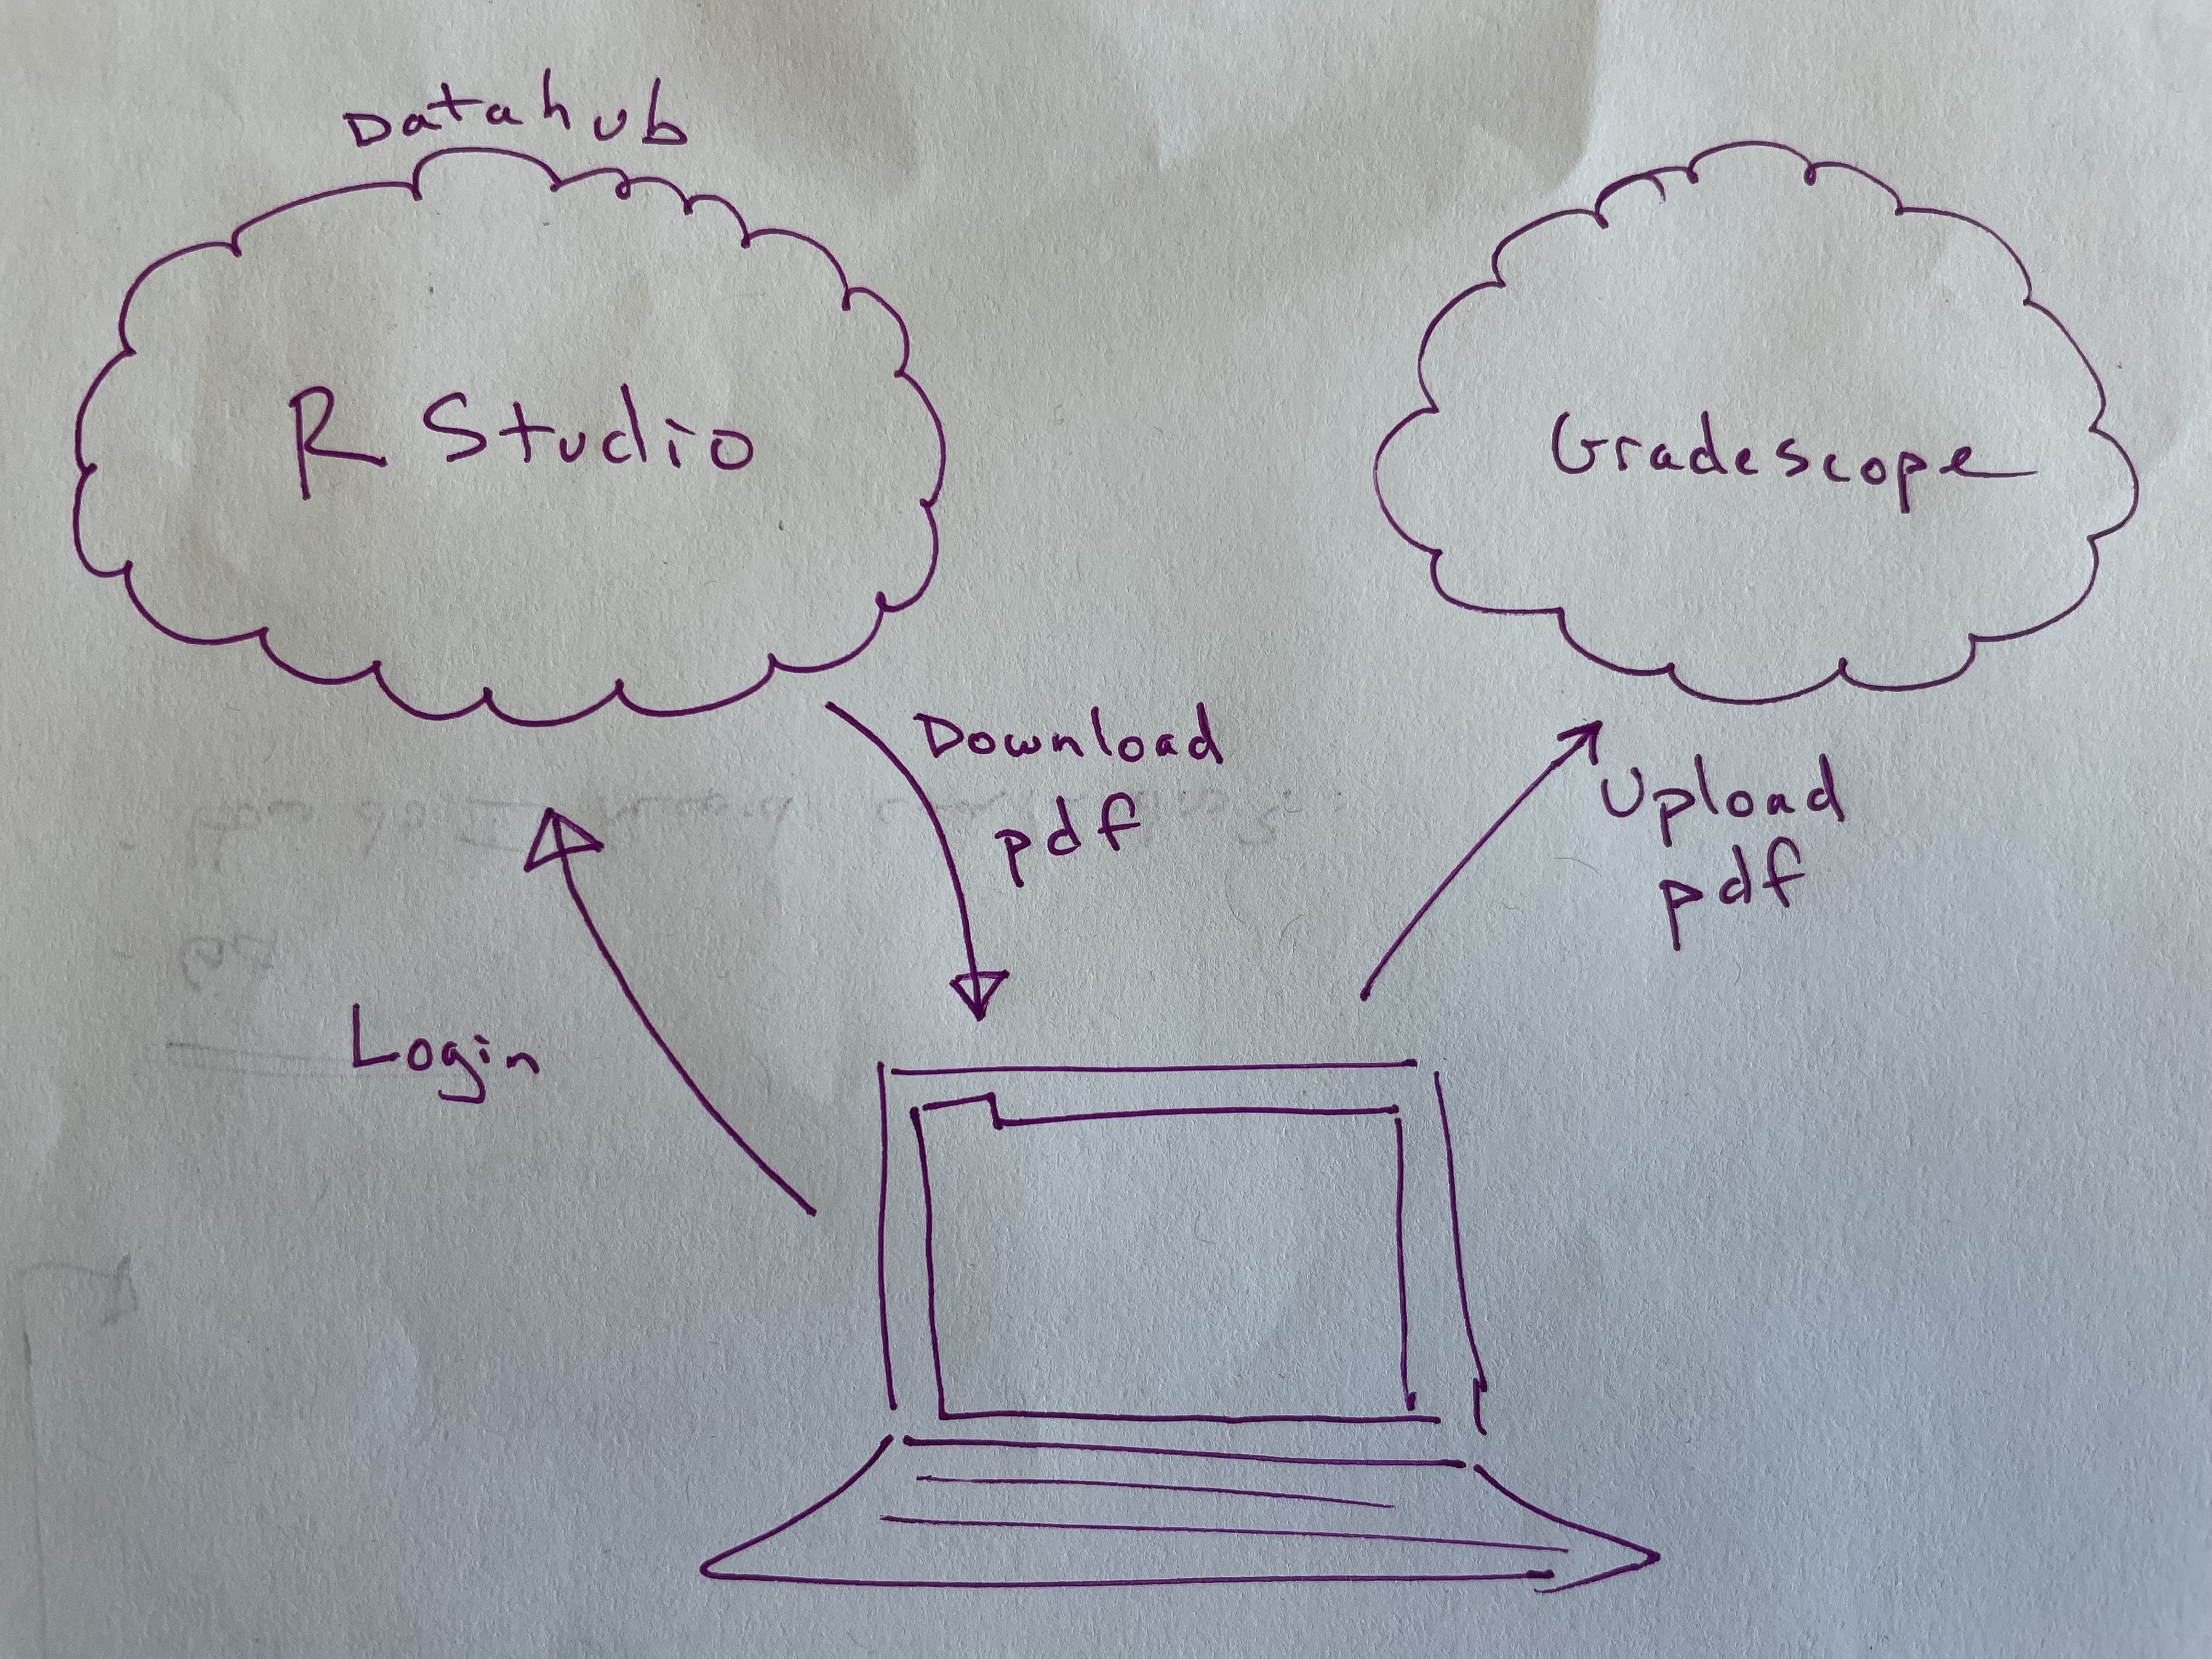 Datahub
R Studio
Gradescope
Download
pdf
Upload
pdf
Login